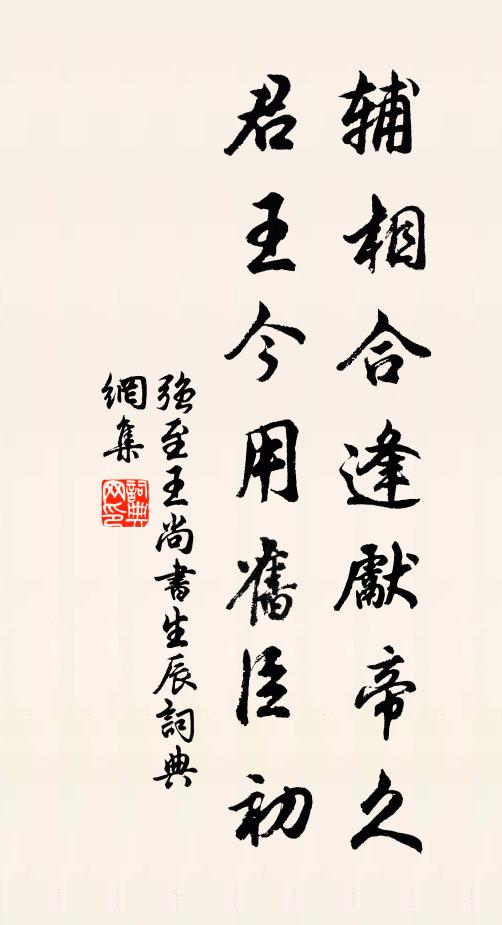 辅相合逢獻帝久
君王今用舊臣初
強至王尚書生辰詞典
網集
詞典
网印